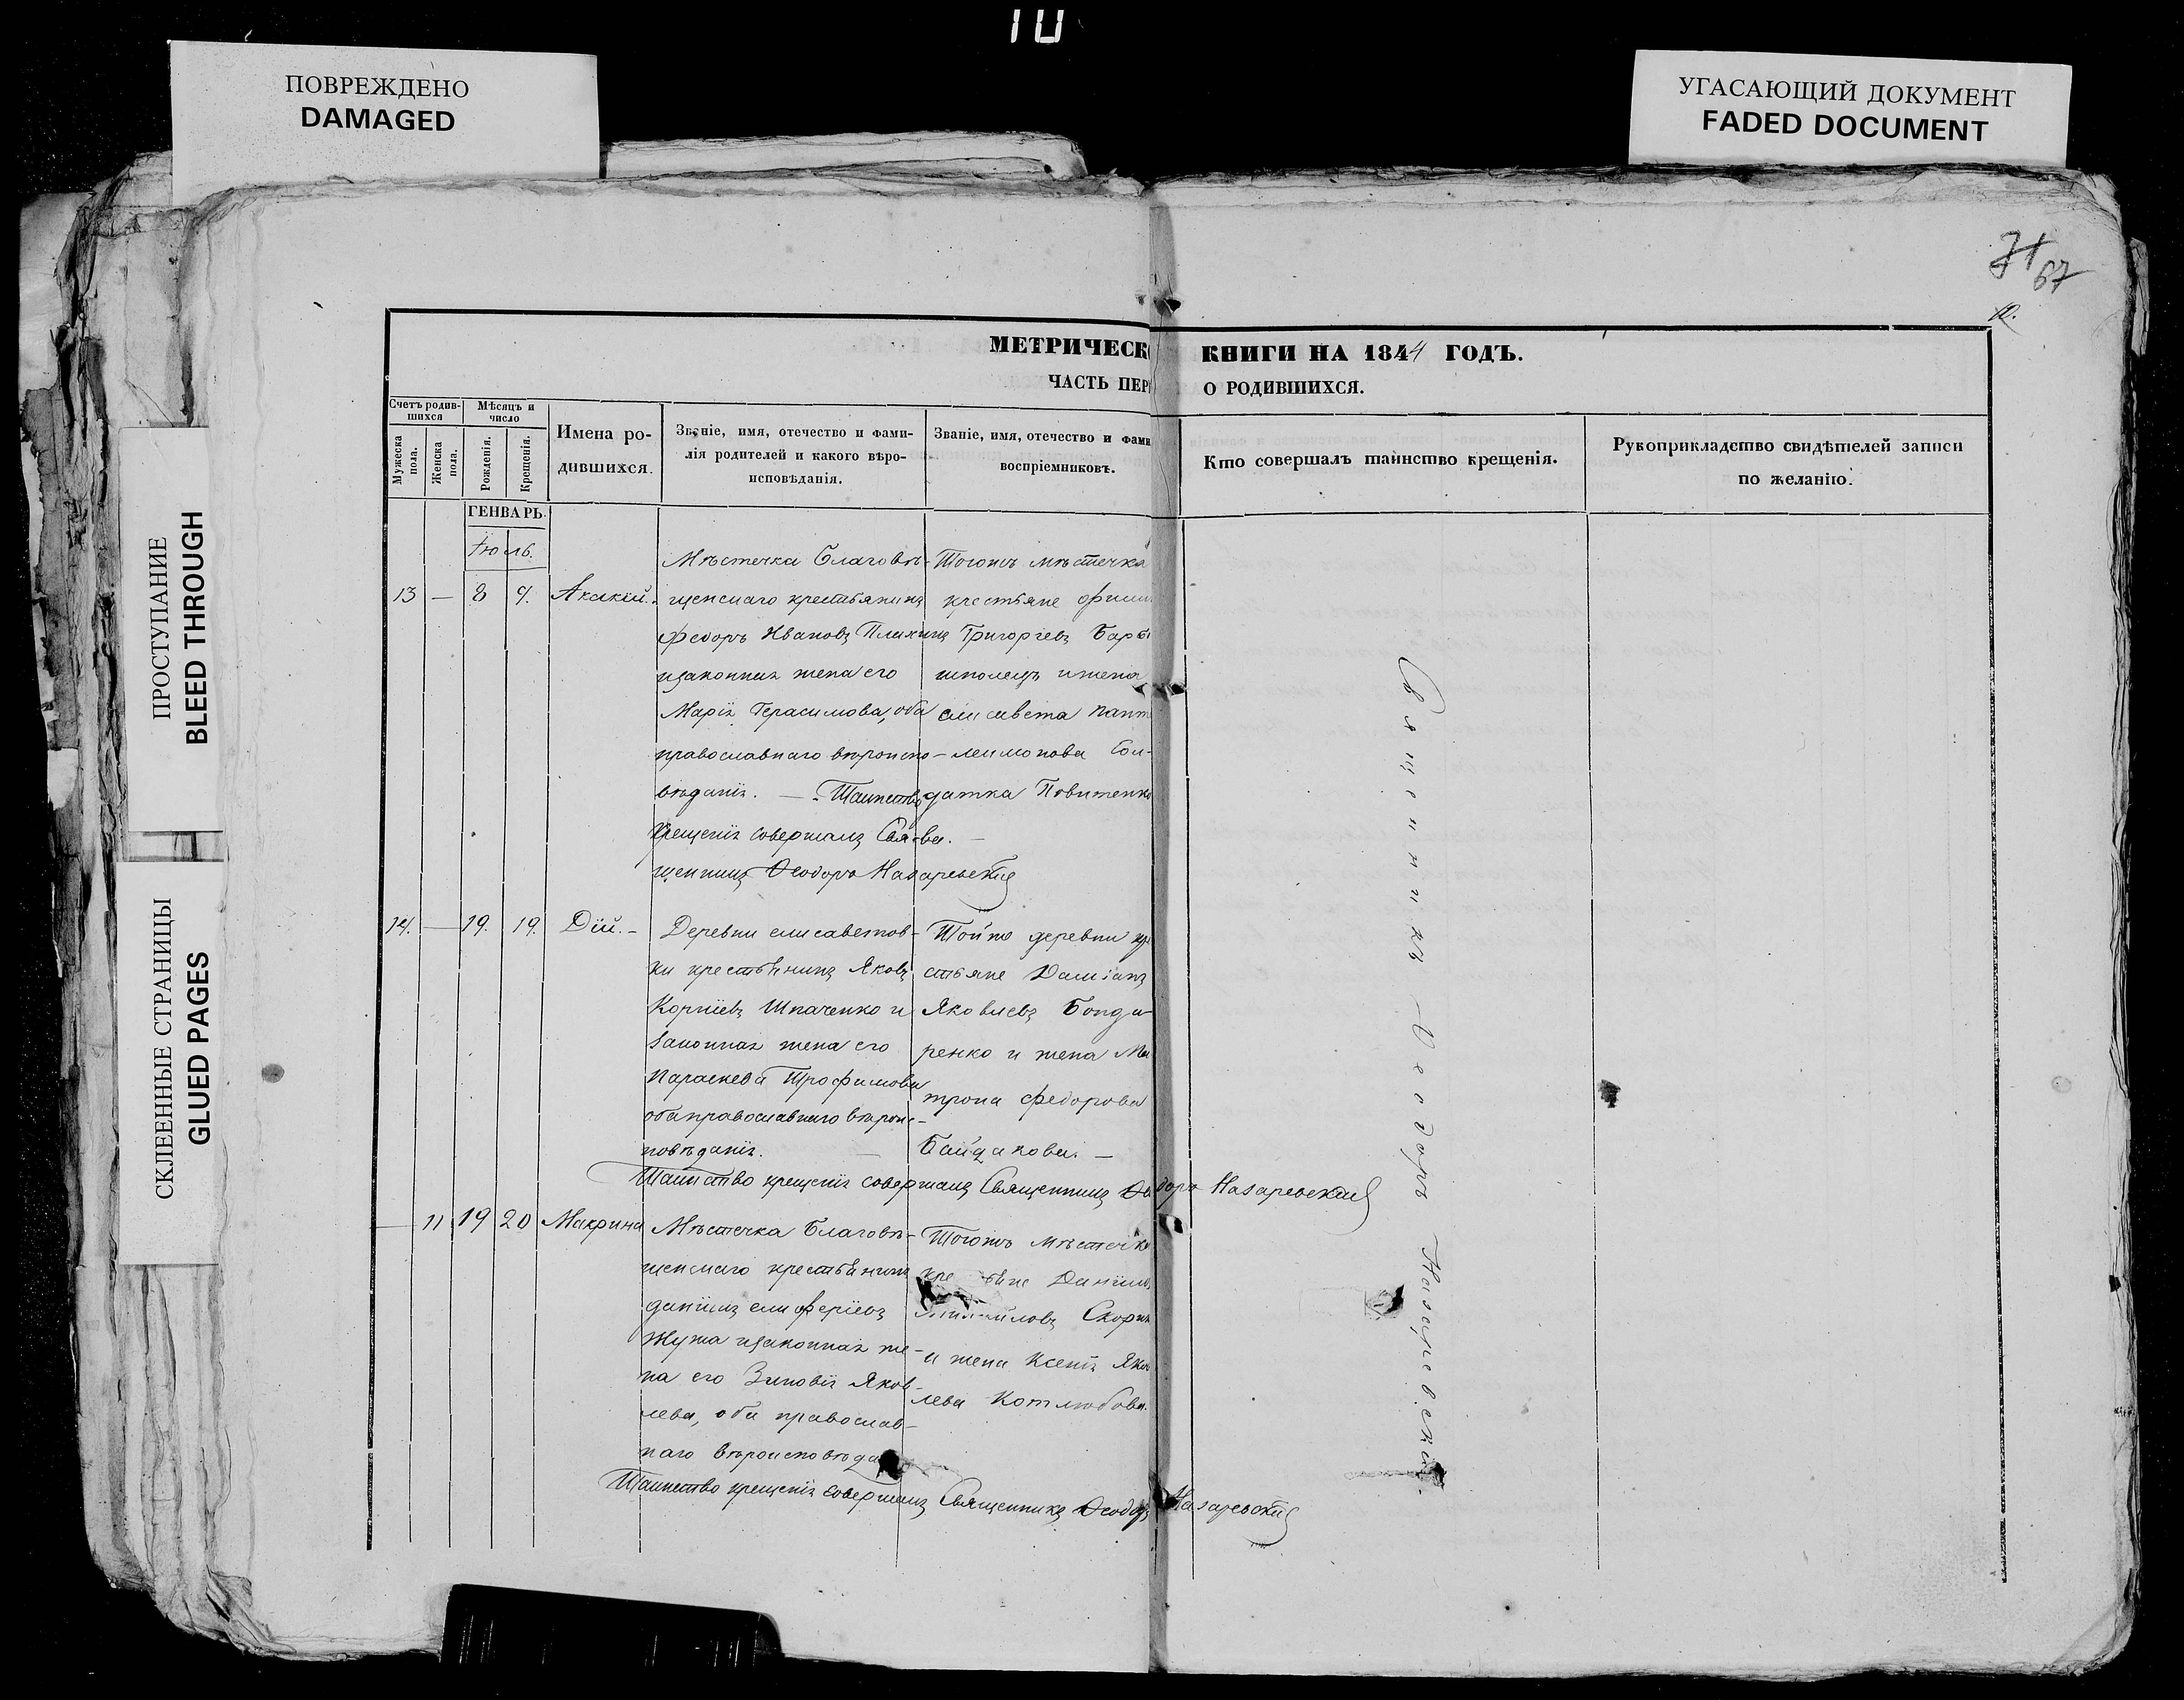 10
ПОВРЕЖДЕНО
DAMAGED
УГАСАЮЩИЙ ДОКУМЕНТ
FADED DOCUMENT
ПРОСТУПАНИЕ
BLEED THROUGH
СКЛЕЕННЫЕ СТРАНИЦЫ
GLUED PAGES
71
67
10.
МЕТРИЧЕСК КНИГИ НА 1844 ГОДЪ.
ЧАСТЬ ПЕР О РОДИВШИХСЯ.
Счетъ родив-
шихся
Мужеска
пола.
Женска
пола.
Мѣсяцъ и
число
Рожденія.
Крещенія.
Имена ро-
дившихся.
Званіе, имя, отечество и фами-
лія родителей и какого вѣро-
исповѣданія.
Званіе, имя, отечество и фами
воспріемниковъ.
Кто совершалъ таинство крещенія.
Рукоприкладство свидѣтелей записи
по желанію.
ГЕНВАРЬ.
Іюль.
13 — 8 9. Акакій.
Мѣстечка Благовѣ-
щенскаго крестьянинъ
Федоръ Ивановъ
изаконная жена его
Марія Герасимова, оба
православнаго вѣроиспо-
вѣданія. — Таинство
Крещенія совершалъ Свя-
щенникъ Ѳеодоръ Назаревскій
Тогожъ мѣстечка
крестьяне
Григорієвъ
ижена
елисавета пант
леимонова Сол-
датка
ва. —
14. — 19. 19. Дій. —
Деревни елисаветов-
ки крестьянинъ Яковъ
Корніевъ Шпаченко и
Законная жена его
Параскева Трофимова
обаправославнаго вѣроис-
повѣданія. —
Тойже деревни кре
стьяне Даміанъ
Яковлевъ Бонда-
ренко и жена Ма
трона Федорова
Байдакова. —
Таинство крещенія совершалъ Священникъ Ѳеодоръ Назаревскій
— 11 19 20 Макрина
Мѣстечка Благовѣ-
щенскаго крестьянинъ
даніилъ елиферіевъ
Жужа изаконная же-
на его Зиновія Яков-
лева, оба православ-
наго вѣроисповѣда
Тогожъ мѣстечка
кре тьяне Даніилъ
Михайловъ
и жена Ксенія Яков
лева Котлюбова.
Таинство крещенія совершалъ Священникъ Ѳеодоръ Назаревскій
Священникъ Ѳеодоръ Назаревскій.